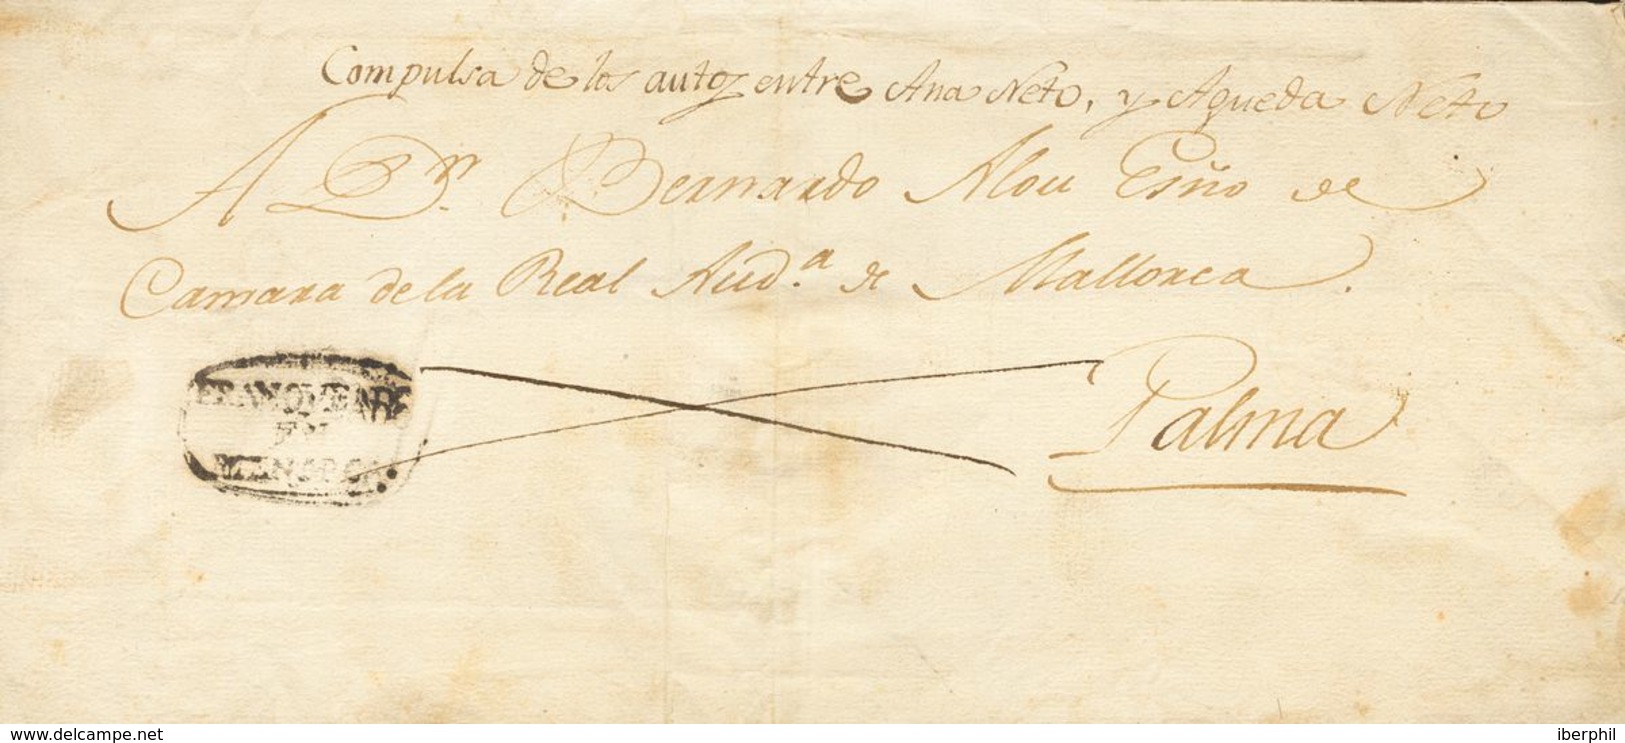 Compulsa de los autos entre Ana Neto, y Agueda Neto
A Dn. Bernardo Alou Esño de
Camara de la Real Aud.a de Mallorca.
FRANQUEADO
EN
MENORCA.
Palma
delcampe.com
iberphil